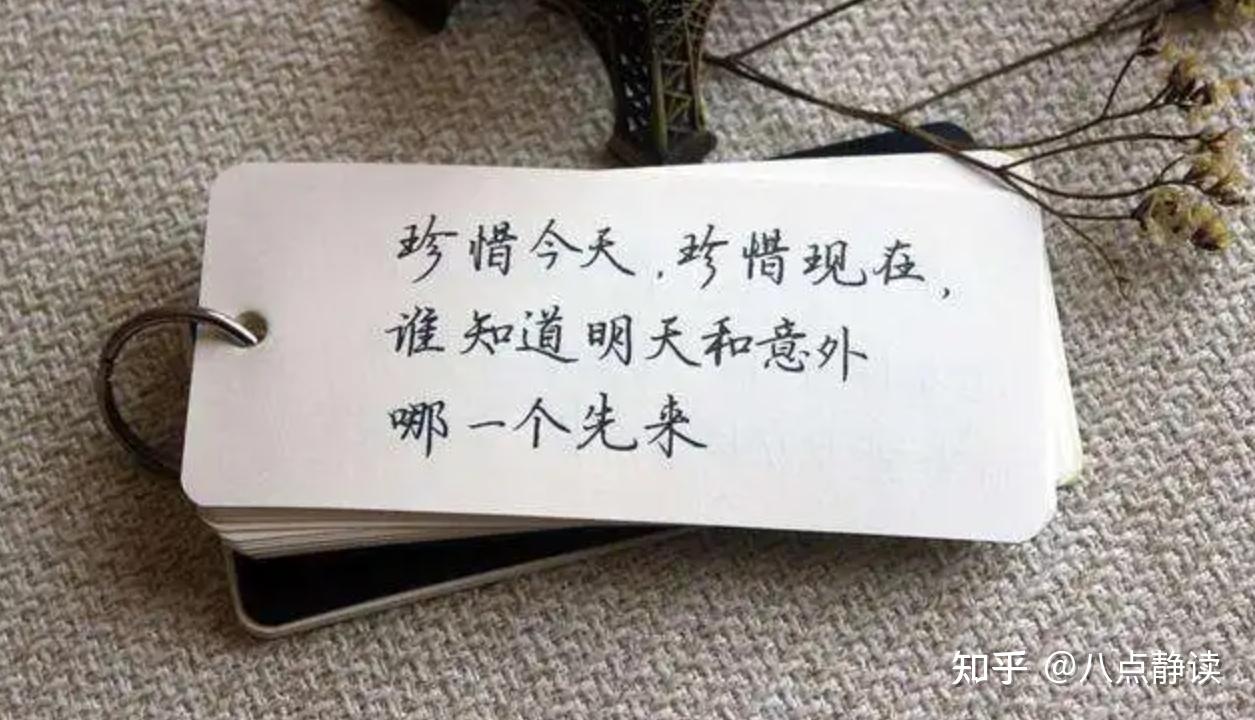 珍惜今天,珍惜现在,
谁知道明天和意外
哪一个先来
知乎 @八点静读